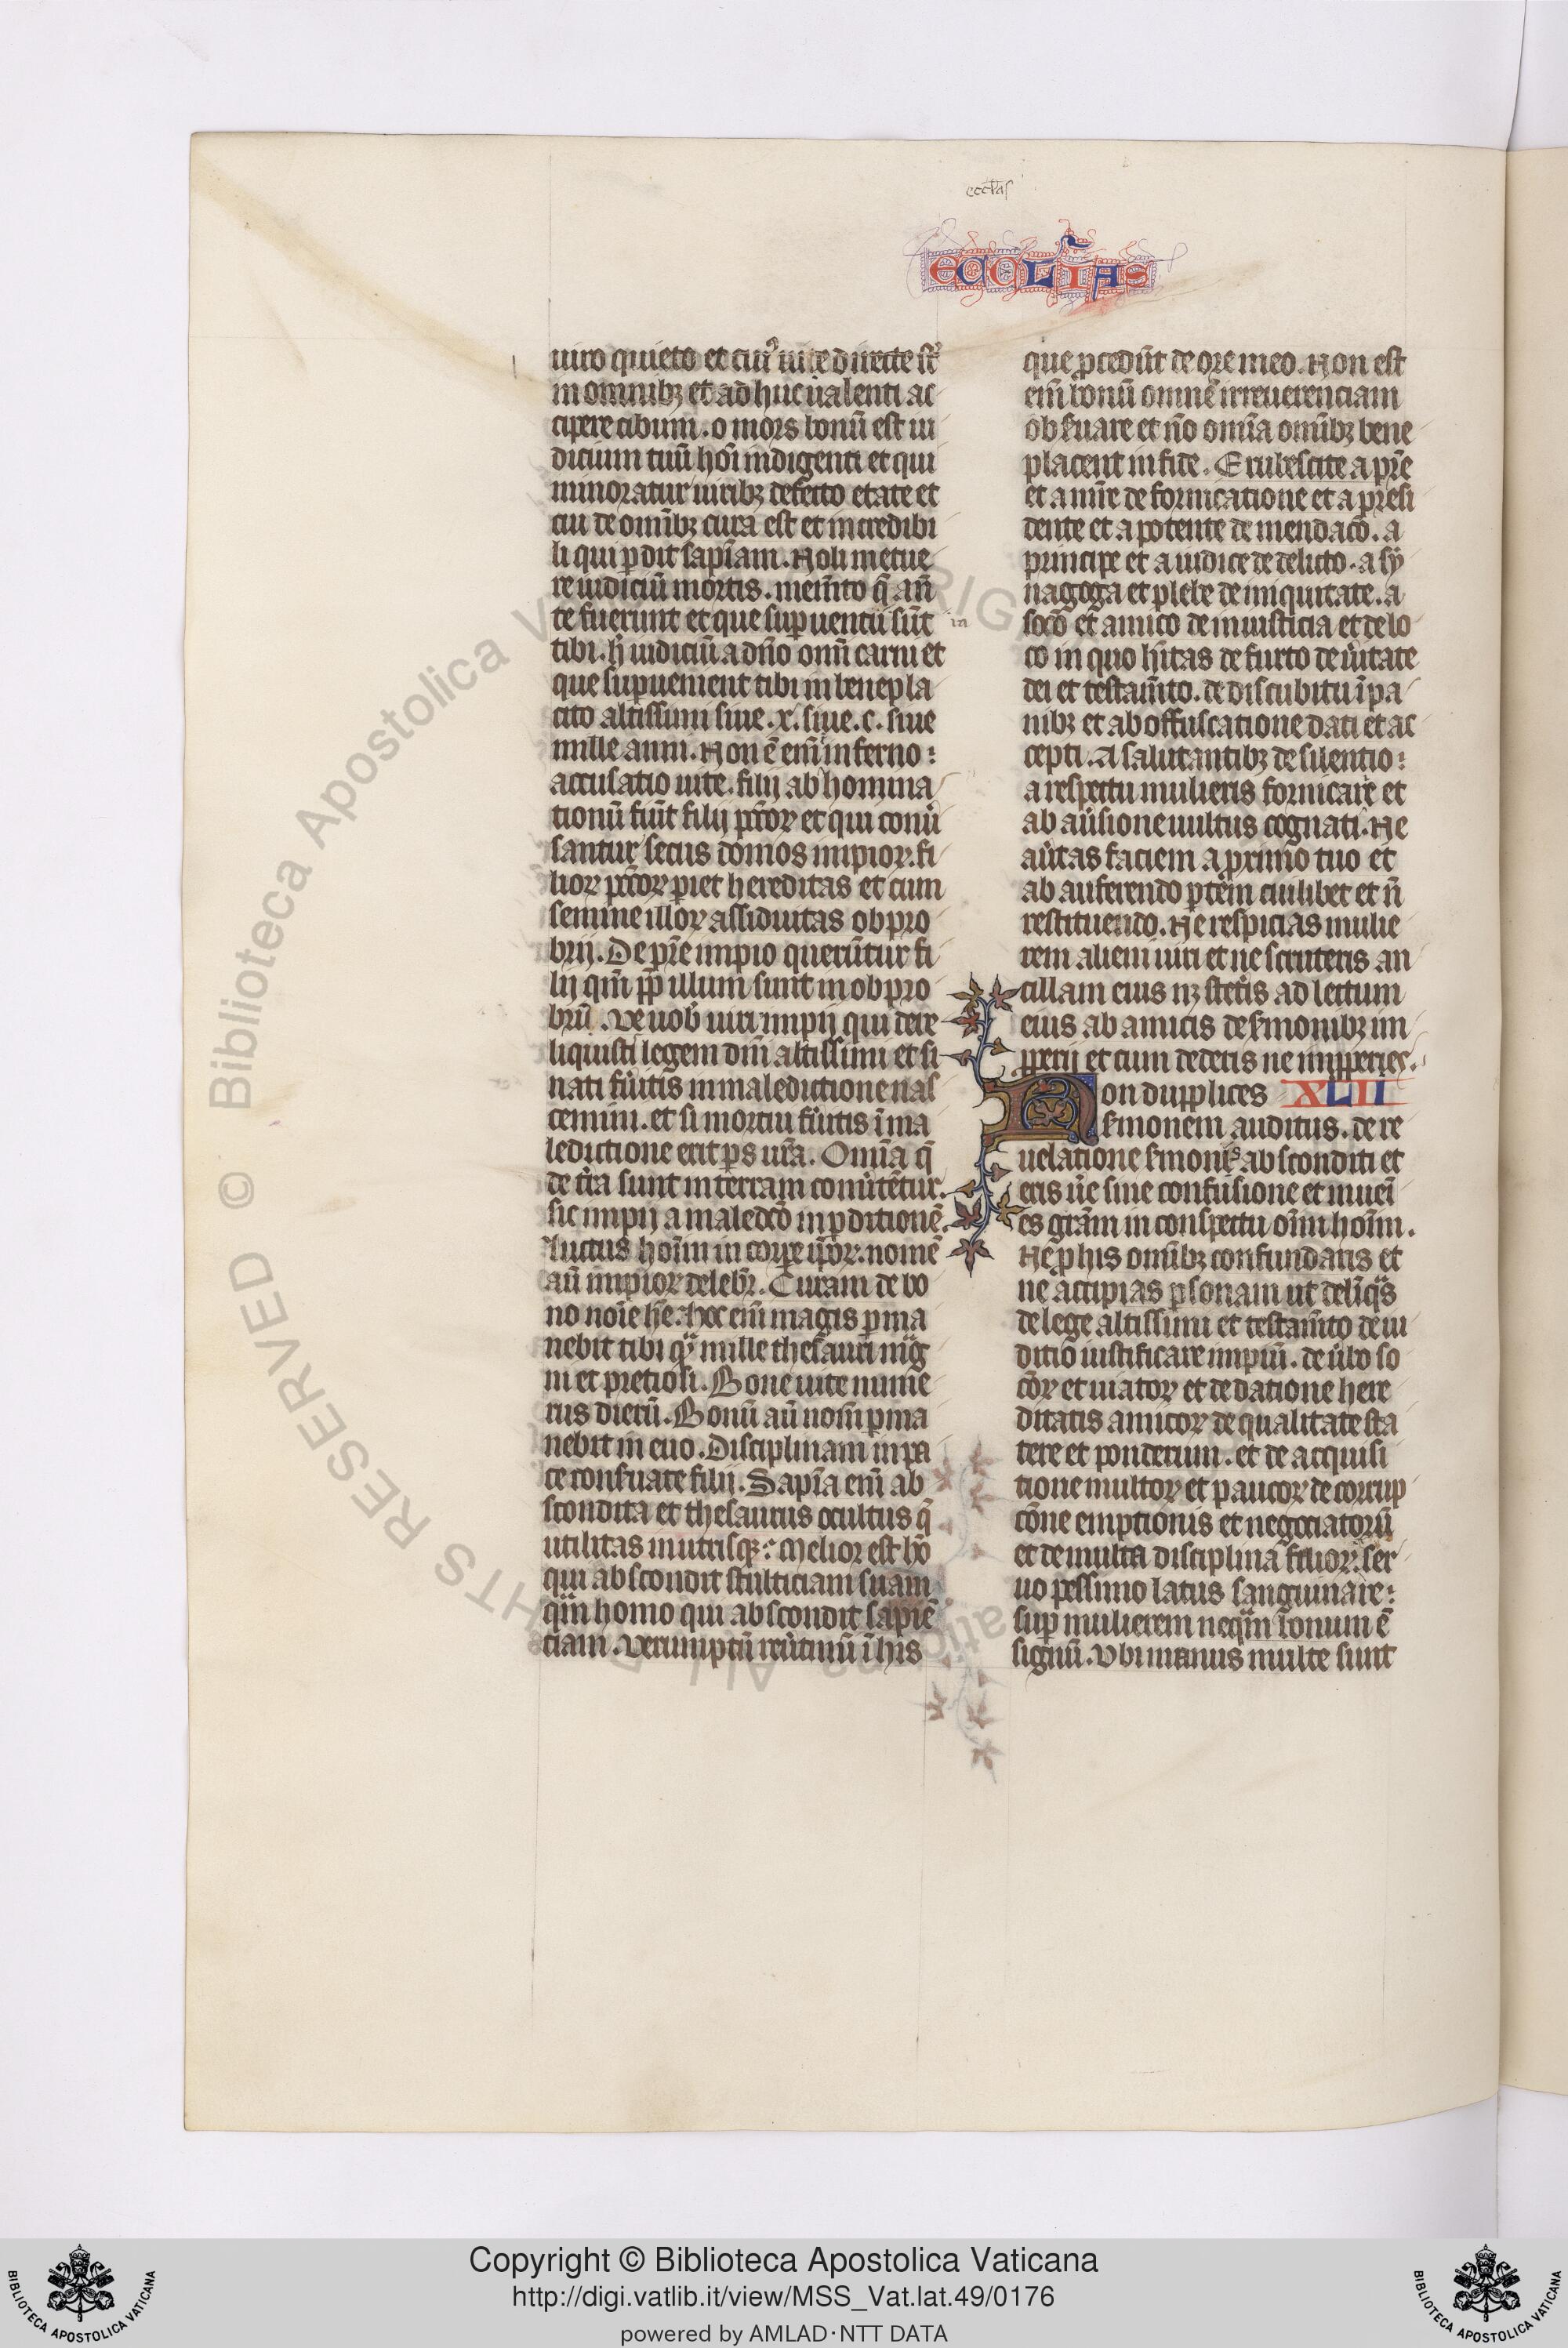 eccl̃as
ECCL̃IAS
uiro quieto et cui᷒ uie directe st̃
in omnibꝫ et adhuc ualenti ac
cipere cibum. o mors bonũ est iu
dicium tuũ hoĩ indigenti et qui
minoratur uiribꝫ defecto etate et
cui de omĩbꝫ cura est et incredibi
li qui ꝑdit sapĩam. Noli metue
re iudiciũ mortis. mem̃to q̃ añ
te fuerunt et que suꝑuentũ sũt
tibi. h̾ iudiciũ a dño omĩ carni et
que suꝑuenient tibi in benepla
cito altissimi siue .x. siue .c. siue
mille anni. Non ẽ eñi in ferno:
accusatio uite. filij abhomina
tionũ fiũt filij pctõꝝ et qui conũ
santur secus domos impioꝝ. fi
lioꝝ pctõꝝ ꝑiet hereditas et cum
semine illoꝝ assiduitas obpro
brij. De pr̃e impio querũtur fi
lij qm̃ ꝓp illum sunt in obpro
briũ. Ve uob̾ uiri impij qui dere
liquisti legem dñi altissimi et si
nati fũitis in maledictione nas
cemini. et si mortui fũitis ĩ ma
ledictione erit ꝑs ur̃a. Om̃ia q̃
de t̾ra sunt in terram conũtẽtur.
sic impij a maledcõ in ꝑditionẽ.
luctus hoĩm in corꝑe ip̃oꝝ. nomẽ
aũ impioꝝ delebr̃. Curam de bo
no noĩe hẽ. hoc eñi magis ꝑma
nebit tibi qͣꝫ mille thesauri mͣg
ni et pretiosi. Bone uite nume
rus dierũ. Bonũ aũ nom̃ ꝑma
nebit in euo. Disciplinam in pa
ce conẜuate filij. Sapĩa eñi ab
scondita et thesaurus ocultus q̃
utilitas in utrisqꝫ: Melior est hõ
qui abscondit stulticiam suam
qͣm homo qui abscondit sapiẽ
ciam. Verumptñ reũtimĩ ĩ his
que ꝓcedũt de ore meo. Non est
eñi bonũ omnẽ irreuerenciam
obẜuare et nõ om̃ia omĩbꝫ bene
placent in fide. Erubescite a pr̃e
et a mr̃e de fornicatione et a presi
dente et a potente de mendacõ. a
principe et a iudice de delicto. a sy
nagoga et plebe de iniquitate. a
socõ et amico de iniusticia et de lo
in
co in quo hĩtas de furto de ũitate
dei et testam̃to. de discubitu ĩ pa
nibꝫ et ab offuscatione dati et ac
cepti. A salutantibꝫ de silentio:
a respectu mulieris fornicarie et
ab aũsione uultus cognati. Ne
aũtas faciem a primo tuo et
ab auferendo ꝑtem cuilibet et ñ
restituendo. Ne respicias mulie
rem alieni uiri et ne scruteris an
cillam eius nꝫ stet̾is ad lectum
eius ab amicis de ẜmonibꝫ im
ꝓperij et cum dederis ne imꝓperies.
Non dupplices XLII
ẜmonem auditus. de re
uelatione ẜmonis absconditi et
eris ũe sine confusione et inueĩ
es gr̃am in conspectu om̃i hoĩm.
Ne ꝓ his omĩbꝫ confundaris et
ne accipias ꝑsonam ut delĩqͣs
de lege altissimi et testam̃to de iu
dicio iustificare impiũ. de ũbo so
cõꝝ et uiatoꝝ et de datione here
ditatis amicoꝝ de qualitate sta
tere et ponderum. et de acquisi
tione multoꝝ et paucoꝝ de corrup
cõne emptionis et negociatorũ
et de multa disciplina filioꝝ. ser
uo pessimo latus sanguinare:
suꝑ mulierem neqͣm bonum ẽ
signũ. Vbi manus multe sunt
© Biblioteca Apostolica Vaticana
ALL RIGHTS RESERVED
Copyright © Biblioteca Apostolica Vaticana
http://digi.vatlib.it/view/MSS_Vat.lat.49/0176
powered by AMLAD·NTT DATA
BIBLIOTECA APOSTOLICA VATICANA
BIBLIOTECA APOSTOLICA VATICANA